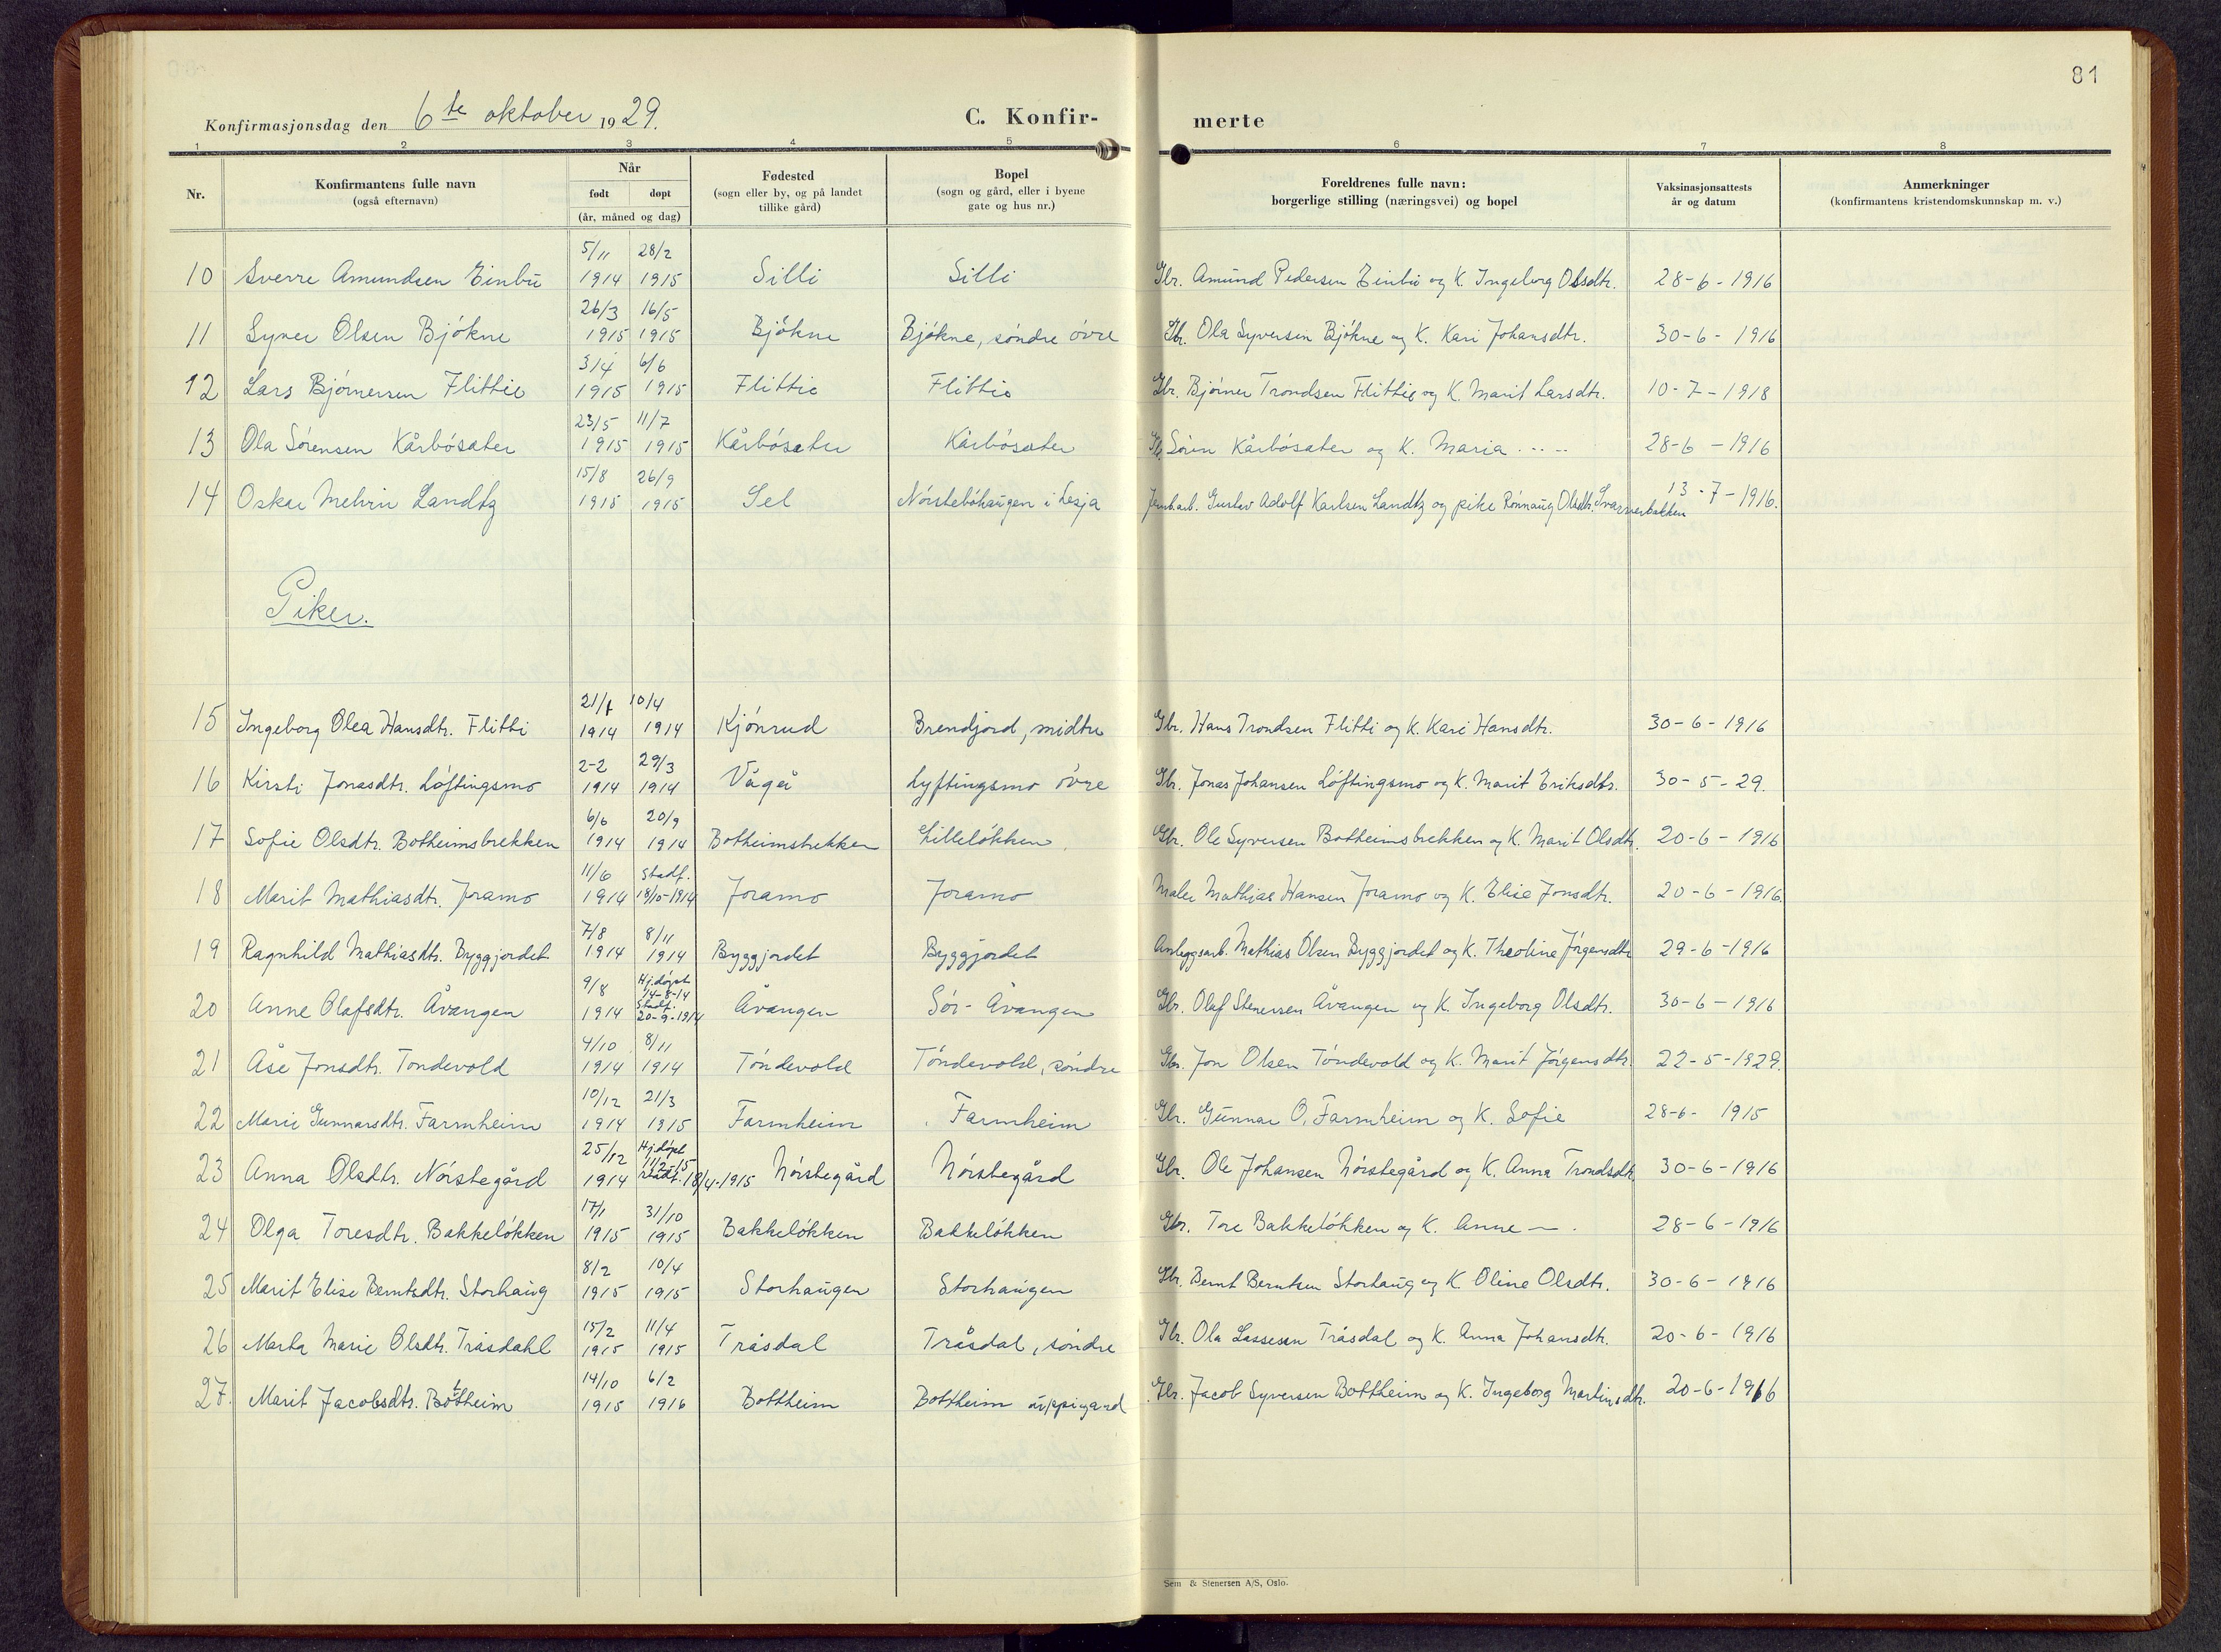 81
Konfirmasjonsdag den 6te oktober 1929.
C. Konfir-
merte
1 2 3 4 5 6 7 8
Nr.
Konfirmantens fulle navn
(også efternavn)
Når
født døpt
(år, måned og dag)
Fødested
(sogn eller by, og på landet
tillike gård)
Bopel
(sogn og gård, eller i byene
gate og hus nr.)
Foreldrenes fulle navn:
borgerlige stilling (næringsvei) og bopel
Vaksinasjonsattests
år og datum
Anmerkninger
(konfirmantens kristendomskunnskap m. v.)
5/11 28/2
10 Sverre Amundsen Einbu 1914 1915 Silli Silli Gbr. Amund Pedersen Einbu og K. Ingeborg Olsdtr. 28-6-1916
26/3 16/5
11 Syver Olsen Bjökne 1915 1915 Bjökne Bjökne, söndre övre Gbr. Ola Syversen Bjökne og K. Kari Johansdtr. 30-6-1916
3/4 6/6
12 Lars Bjørnersen Flittie 1915 1915 Flittie Flittie Gbr. Bjørner Trondsen Flittie og K. Marit Larsdtr. 10-7-1918
23/5 11/7
13 Ola Sørensen Kårbósater 1915 1915 Kårbósater Kårbósater Søren Kårbósater og K. Maria ..... 28-6-1916
15/8 26/9
14 Oskar Mehrin Landtz 1915 1915 Sel Nórstebóhaugen i Lesja Jernb.arb. Gustav Adolf Karlsen Landtz og pike Rónnaug Olsdtr. Svarverbakken 13-7-1916.
Piker.
21/1 10/4
15 Ingeborg Olea Hansdtr. Flitti 1914 1914 Kjónrud Brendjord, midtre Gbr. Hans Trondsen Flitti og K. Kari Hansdtr. 30-6-1916
2-2 29/3
16 Kirsti Jonasdtr. Lóftingsmo 1914 1914 Vågå Lyftingsmo óvre Gbr. Jonas Johansen Lóftingsmo og K. Marit Eriksdtr. 30-5-29.
6/6 20/9
17 Sofie Olsdtr. Botheimsbrekken 1914 1914 Botheimsbrekken Lillelókken Gbr. Ole Syversen Botheimsbrekken og K. Marit Olsdtr. 20-6-1916
11/6 Stadf.
18 Marit Mathiasdtr. Joramo 1914 18/10-1914 Joramo Joramo Maler Mathias Hansen Joramo og K. Elise Jonsdtr. 20-6-1916.
7/8 8/11
19 Ragnhild Mathiasdtr. Byggjordet 1914 1914 Byggjordet Byggjordet Anleggsarb. Mathias Olsen Byggjordet og K. Theoline Jórgensdtr. 29-6-1916
9/8 Hj.dópt
14-8-14
Stadf.
20 Anne Olafsdtr. Åvangen 1914 20-9-1914 Åvangen Sór-Åvangen Gbr. Olaf Stenersen Åvangen og K. Ingeborg Olsdtr. 30-6-1916
4/10 8/11
21 Åse Jonsdtr. Tondevold 1914 1914 Tóndevold Tóndevold, sóndre Gbr. Jon Olsen Tóndevold og K. Marit Jórgensdtr. 22-5-1929.
10/12 21/3
22 Marie Gunnarsdtr. Farmheim 1914 1915 Farmheim Farmheim Gbr. Gunnar O. Farmheim og K. Sofie 28-6-1915
25/12 Hj.dópt
23 Anna Olsdtr. Nórstegård 1914 stadf. 18/4-1915 Nórstegård Nórstegård Gbr. Ole Johansen Nórstegård og K. Anna Trondsdtr. 30-6-1916
17/1 31/10
24 Olga Toresdtr. Bakkelókken 1915 1915 Bakkelókken Bakkelókken Gbr. Tore Bakkelókken og K. Anne — . 28-6-1916
8/2 10/4
25 Marit Elise Berntsdtr. Storhaug 1915 1915 Storhaugen Storhaugen Gbr. Bernt Berntsen Storhaug og K. Oline Olsdtr. 30-6-1916
15/2 11/4
26 Marta Marie Olsdtr. Tråsdahl 1915 1915 Tråsdal Tråsdal, sóndre Gbr. Ola Lassesen Tråsdal og K. Anna Johansdtr. 20-6-1916
14/10 6/2
27. Marit Jacobsdtr. Bottheim 1915 1916 Bottheim Bottheim uppigard Gbr. Jacob Syversen Bottheim og K. Ingeborg Martinsdtr. 20-6-1916
Sem & Stenersen A/S, Oslo.